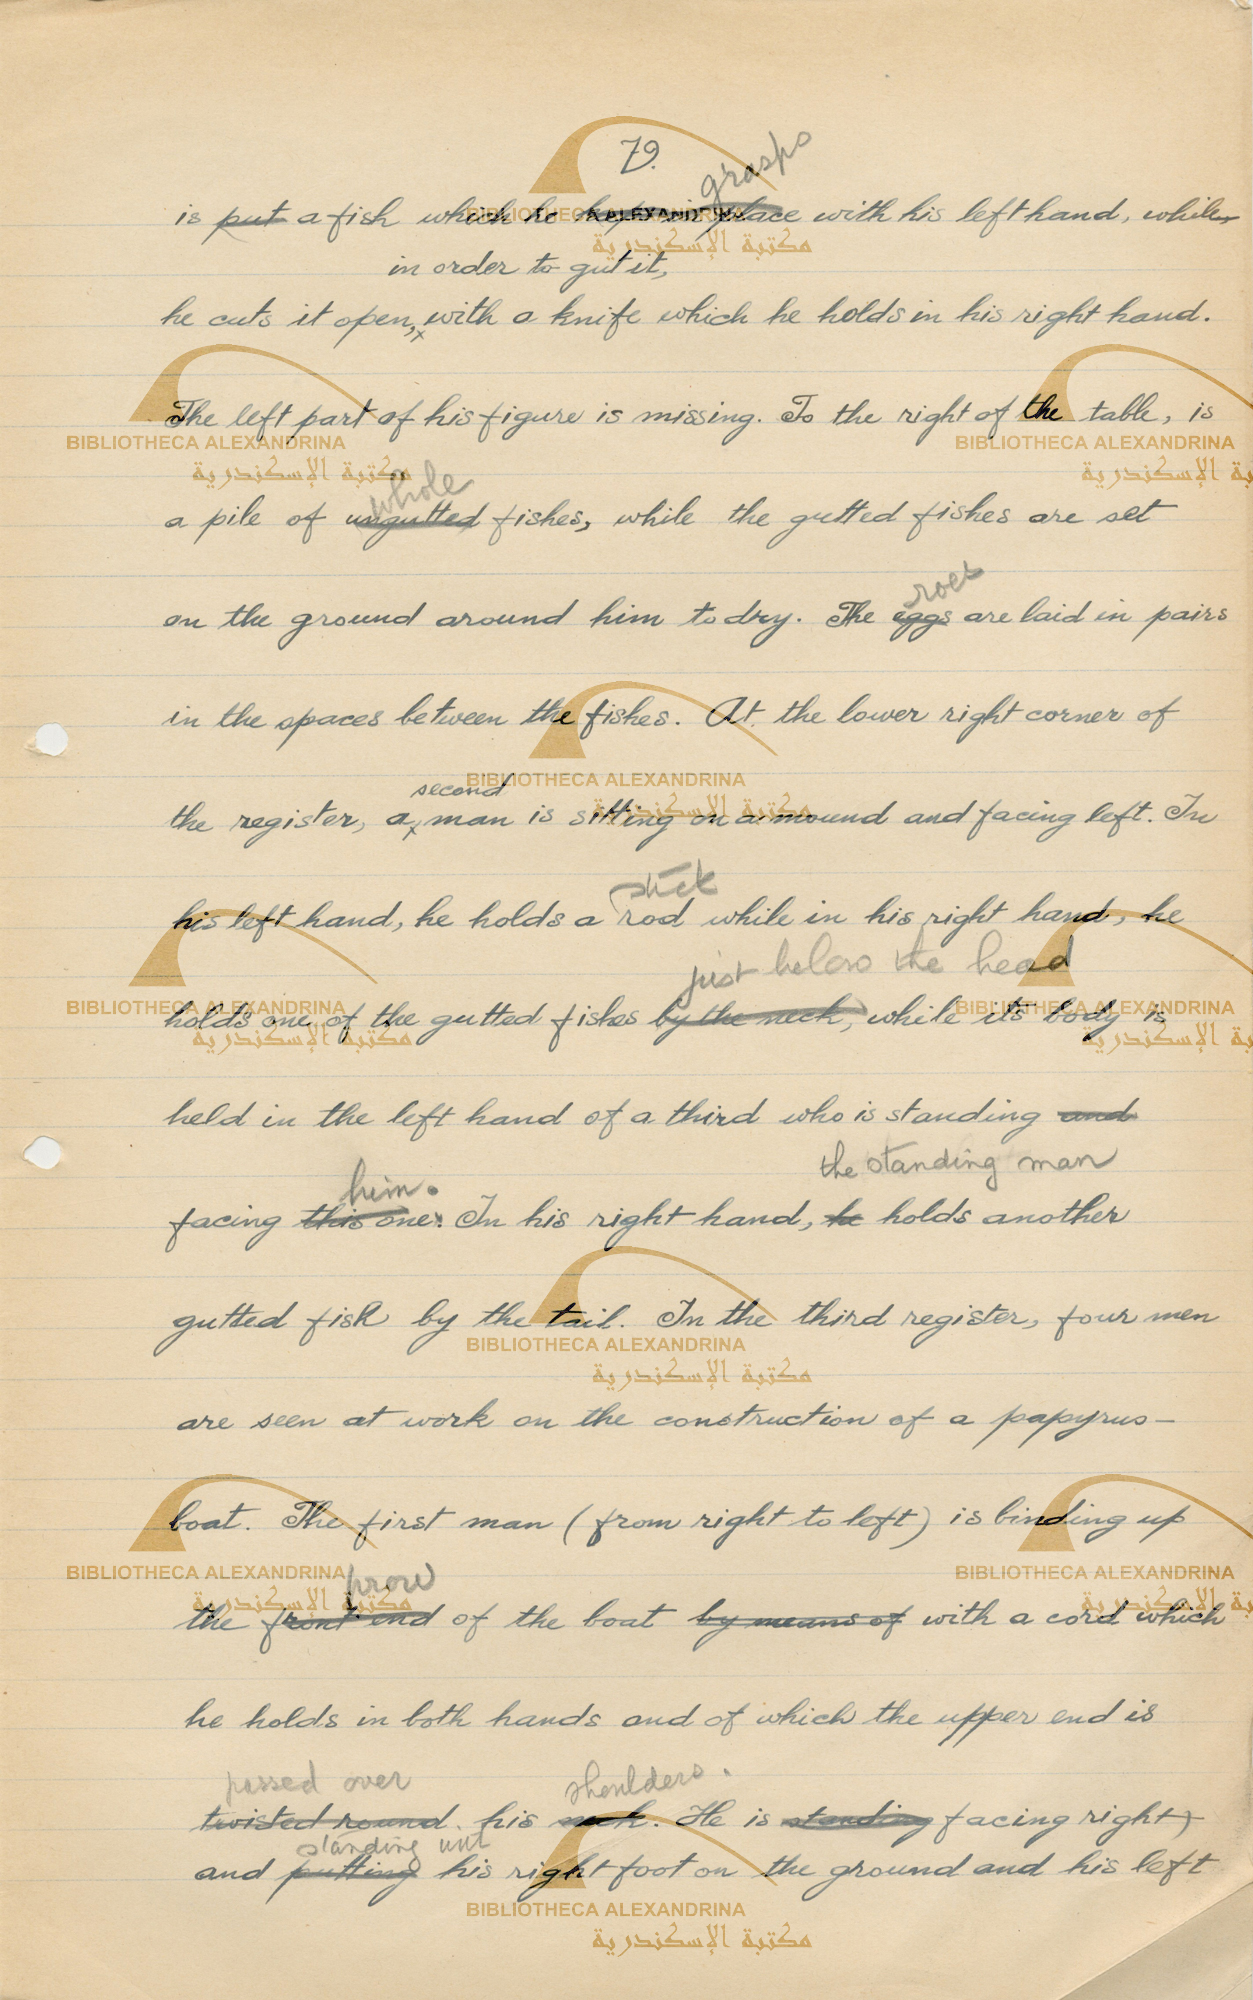 79.
grasps
is put a fish which he keeps in place with his left hand, while
in order to gut it,
he cuts it open, x with a knife which he holds in his right hand.
The left part of his figure is missing. To the right of the table, is
whole
a pile of ungutted fishes, while the gutted fishes are set
roes
on the ground around him to dry. The eggs are laid in pairs
in the spaces between the fishes. At the lower right corner of
second
the register, a x man is sitting on a mound and facing left. In
stick
his left hand, he holds a rod while in his right hand, he
just below the head
holds one of the gutted fishes by the neck, while its body is
held in the left hand of a third who is standing and
him. the standing man
facing this one. In his right hand, he holds another
gutted fish by the tail. In the third register, four men
are seen at work on the construction of a papyrus-
boat. The first man (from right to left) is binding up
prow
the front end of the boat by means of with a cord which
he holds in both hands and of which the upper end is
passed over shoulders.
twisted round his neck. He is standing facing right,
standing with
and putting his right foot on the ground and his left
BIBLIOTHECA ALEXANDRINA
مكتبة الإسكندرية